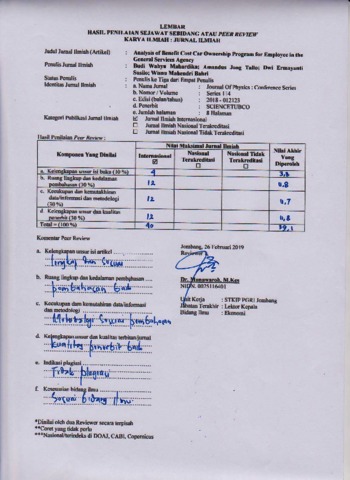 LEMBAR
HASIL PENILAIAN SEJAWAT SEBIDANG ATAU PEER REVIEW
KARYA ILMIAH : JURNAL ILMIAH
Judul Jurnal Ilmiah (Artikel) : Analysis of Benefit Cost Car Ownership Program for Employee in the
General Services Agency
Penulis Jurnal Ilmiah : Budi Wahyu Mahardika; Amandus Jong Tallo; Dwi Ermayanti
Susilo; Wisnu Mahendri Bahri
Status Penulis : Penulis ke Tiga dari Empat Penulis
Identitas Jurnal Ilmiah : a. Nama Jurnal : Journal Of Physics : Conference Series
b. Nomor / Volume : Series 114
c. Edisi (bulan/tahun) : 2018 - 012123
d. Penerbit : SCIENCETUBCO
e. Jumlah halaman : 8 Halaman
Kategori Publikasi Jurnal Ilmiah : ☑ Jurnal Ilmiah Internasional
☐ Jurnal Ilmiah Nasional Terakreditasi
☐ Jurnal Ilmiah Nasional Tidak Terakreditasi
Hasil Penilaian Peer Review :
Komponen Yang Dinilai
Nilai Maksimal Jurnal Ilmiah
Nilai Akhir Yang Diperoleh
Internasional ☑
Nasional Terakreditasi ☐
Nasional Tidak Terakreditasi ☐
a. Kelengkapan unsur isi buku (10 %) 4 3,8
b. Ruang lingkup dan kedalaman pembahasan (30 %) 12 4,8
c. Kecukupan dan kemutakhiran data/informasi dan metodologi (30 %) 12 4,7
d. Kelengkapan unsur dan kualitas penerbit (30 %) 12 4,8
Total = (100 %) 40
Komentar Peer Review
Jombang, 26 Februari 2019
Reviewer
a. Kelengkapan unsur isi artikel
Lengkap dan sesuai
b. Ruang lingkup dan kedalaman pembahasan
pembahasan baik
Dr. Munawaroh, M.Kes
NIDN. 0025116601
Unit Kerja : STKIP PGRI Jombang
Jabatan Terakhir : Lektor Kepala
Bidang Ilmu : Ekonomi
c. Kecukupan dan kemutahiran data/informasi
dan metodologi
Metodologi sesuai pembahasan
d. Kelengkapan unsur dan kualitas terbitan jurnal
kualitas penerbit baik
e. Indikasi plagiasi
Tidak plagiasi
f. Kesesuaian bidang ilmu
Sesuai bidang ilmu
*Dinilai oleh dua Reviewer secara terpisah
**Coret yang tidak perlu
***Nasional/terindeks di DOAJ, CABI, Copernicus